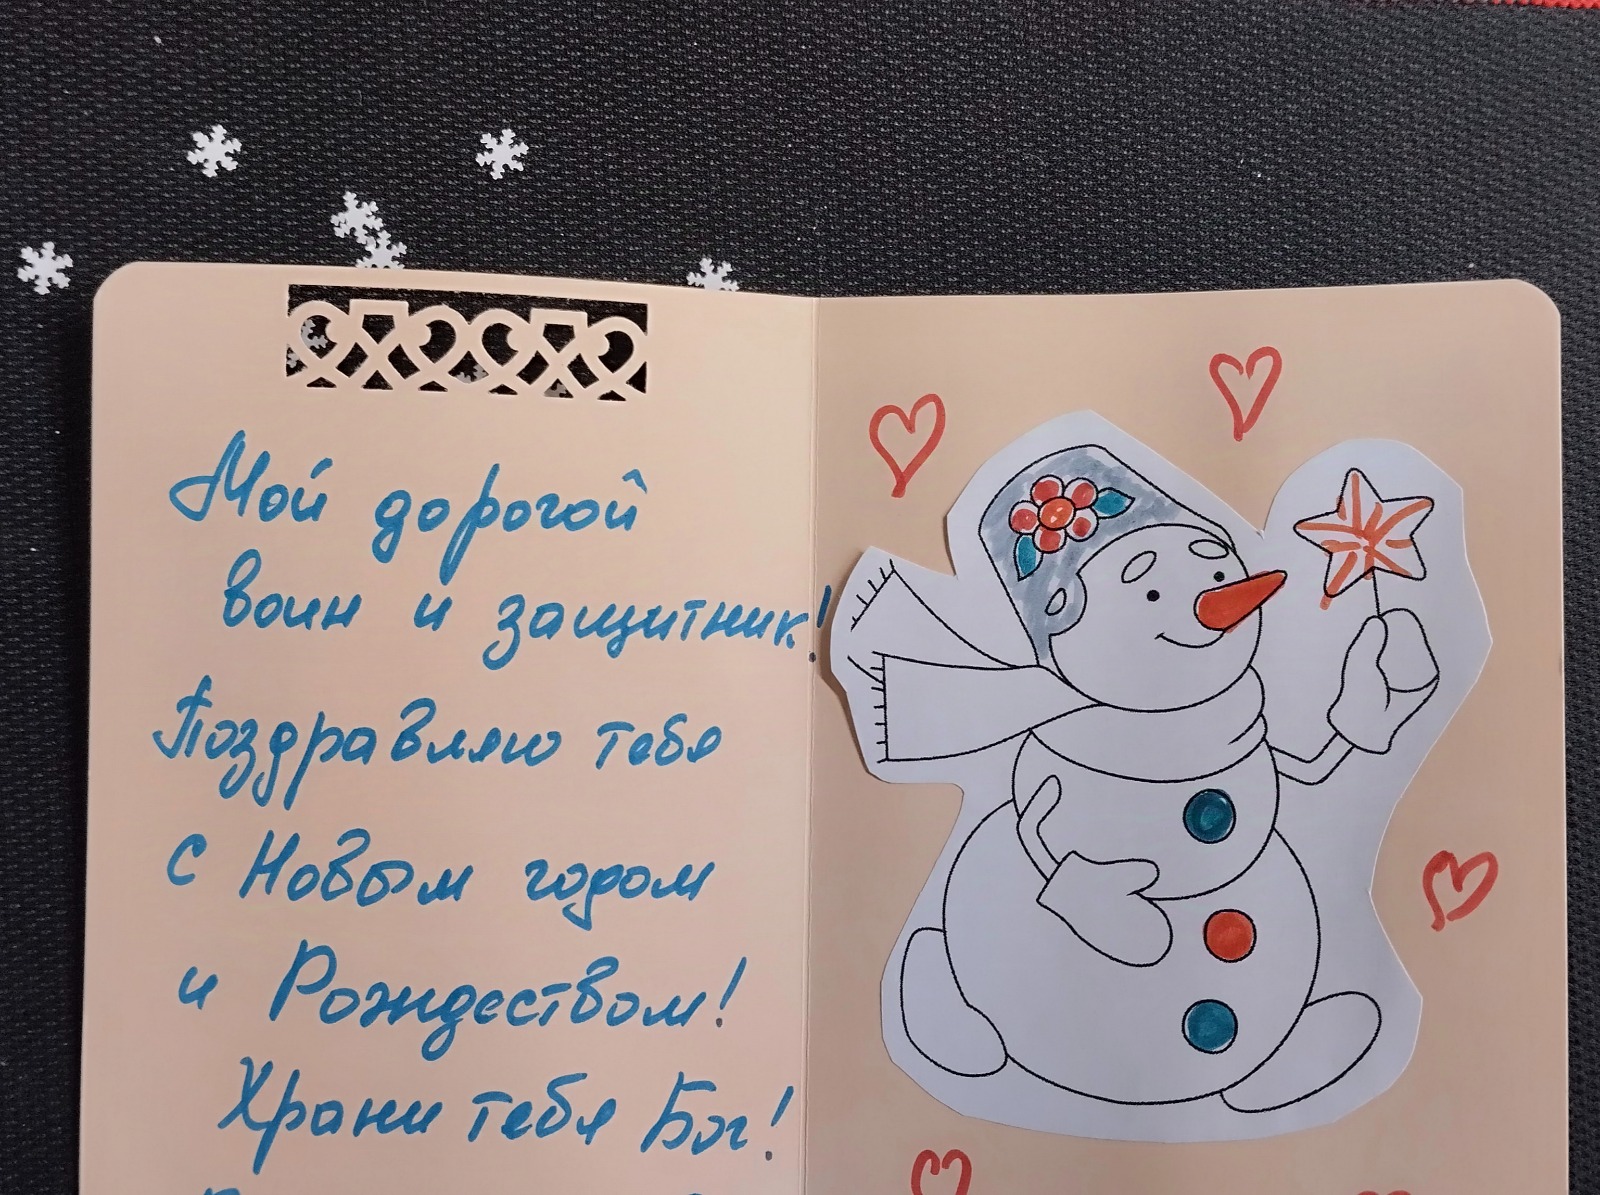 Мой дорогой
воин и защитник!
Поздравляю тебя
с Новым годом
и Рождеством!
Храни тебя Бог!